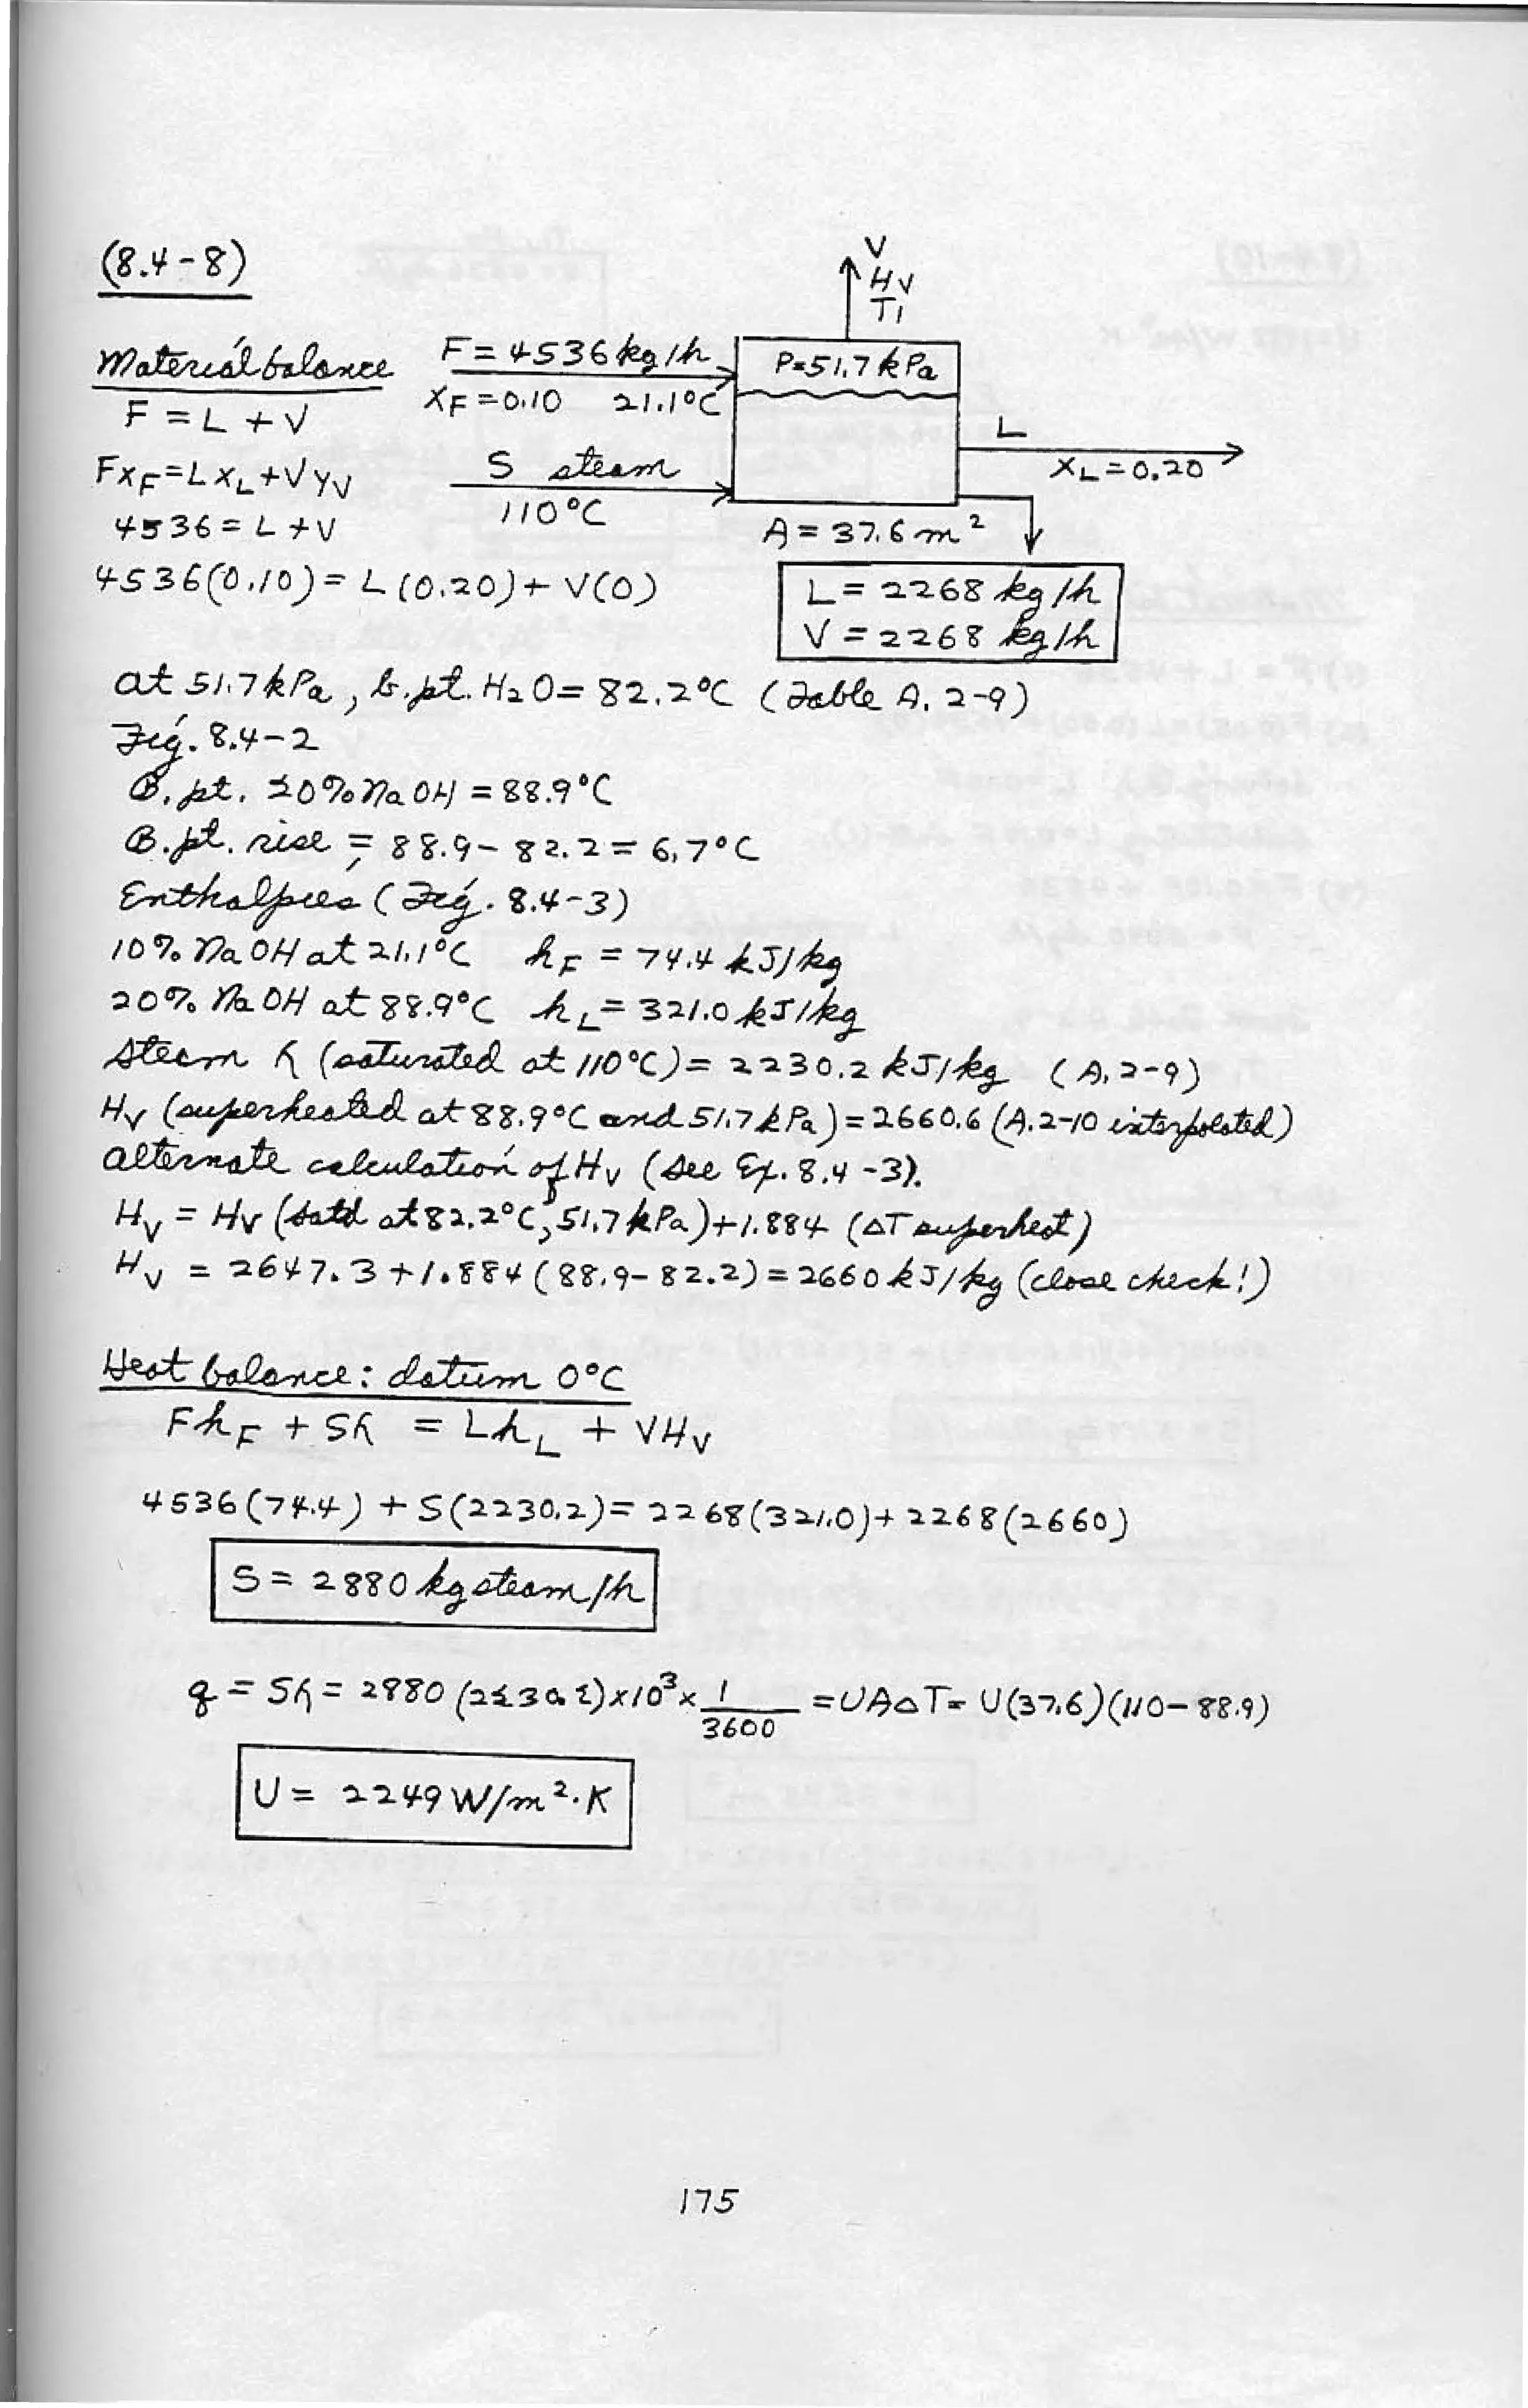 (8.4-8)
V
Hv
T1
Material balance
F = 4536 kg/h
P=51.7 kPa
XF=0.10 21.1°C
F = L + V
L
FXF=LXL+VYV
S steam
XL=0.20
110°C
4536= L+V
A = 37.6 m²
4536(0.10)= L(0.20)+ V(0)
L = 2268 kg/h
V = 2268 kg/h
at 51.7kPa, b.pt. H2O= 82.2°C (Table A.2-9)
Fig. 8.4-2
B.pt. 20% NaOH = 88.9°C
B.pt. rise = 88.9- 82.2= 6.7°C
Enthalpies (Fig. 8.4-3)
10% NaOH at 21.1°C hF = 74.4 kJ/kg
20% NaOH at 88.9°C hL= 321.0 kJ/kg
Steam λ (saturated at 110°C)= 2230.2 kJ/kg (A.2-9)
Hv (superheated at 88.9°C and 51.7kPa)=2660.6 (A.2-10 interpolated)
alternate calculation of Hv (see Ex. 8.4-3).
Hv = Hv (satd at 82.2°C, 51.7kPa)+1.884 (ΔT superheat)
Hv = 2647.3+1.884(88.9-82.2)=2660 kJ/kg (close check!)
Heat balance: datum 0°C
FhF + Sλ = LhL + VHv
4536(74.4) + S(2230.2)= 2268(321.0)+ 2268(2660)
S = 2880 kg steam/h
q = Sλ = 2880 (2230.2)x10³x 1/3600 =UAΔT= U(37.6)(110-88.9)
U = 2249 W/m²·K
175